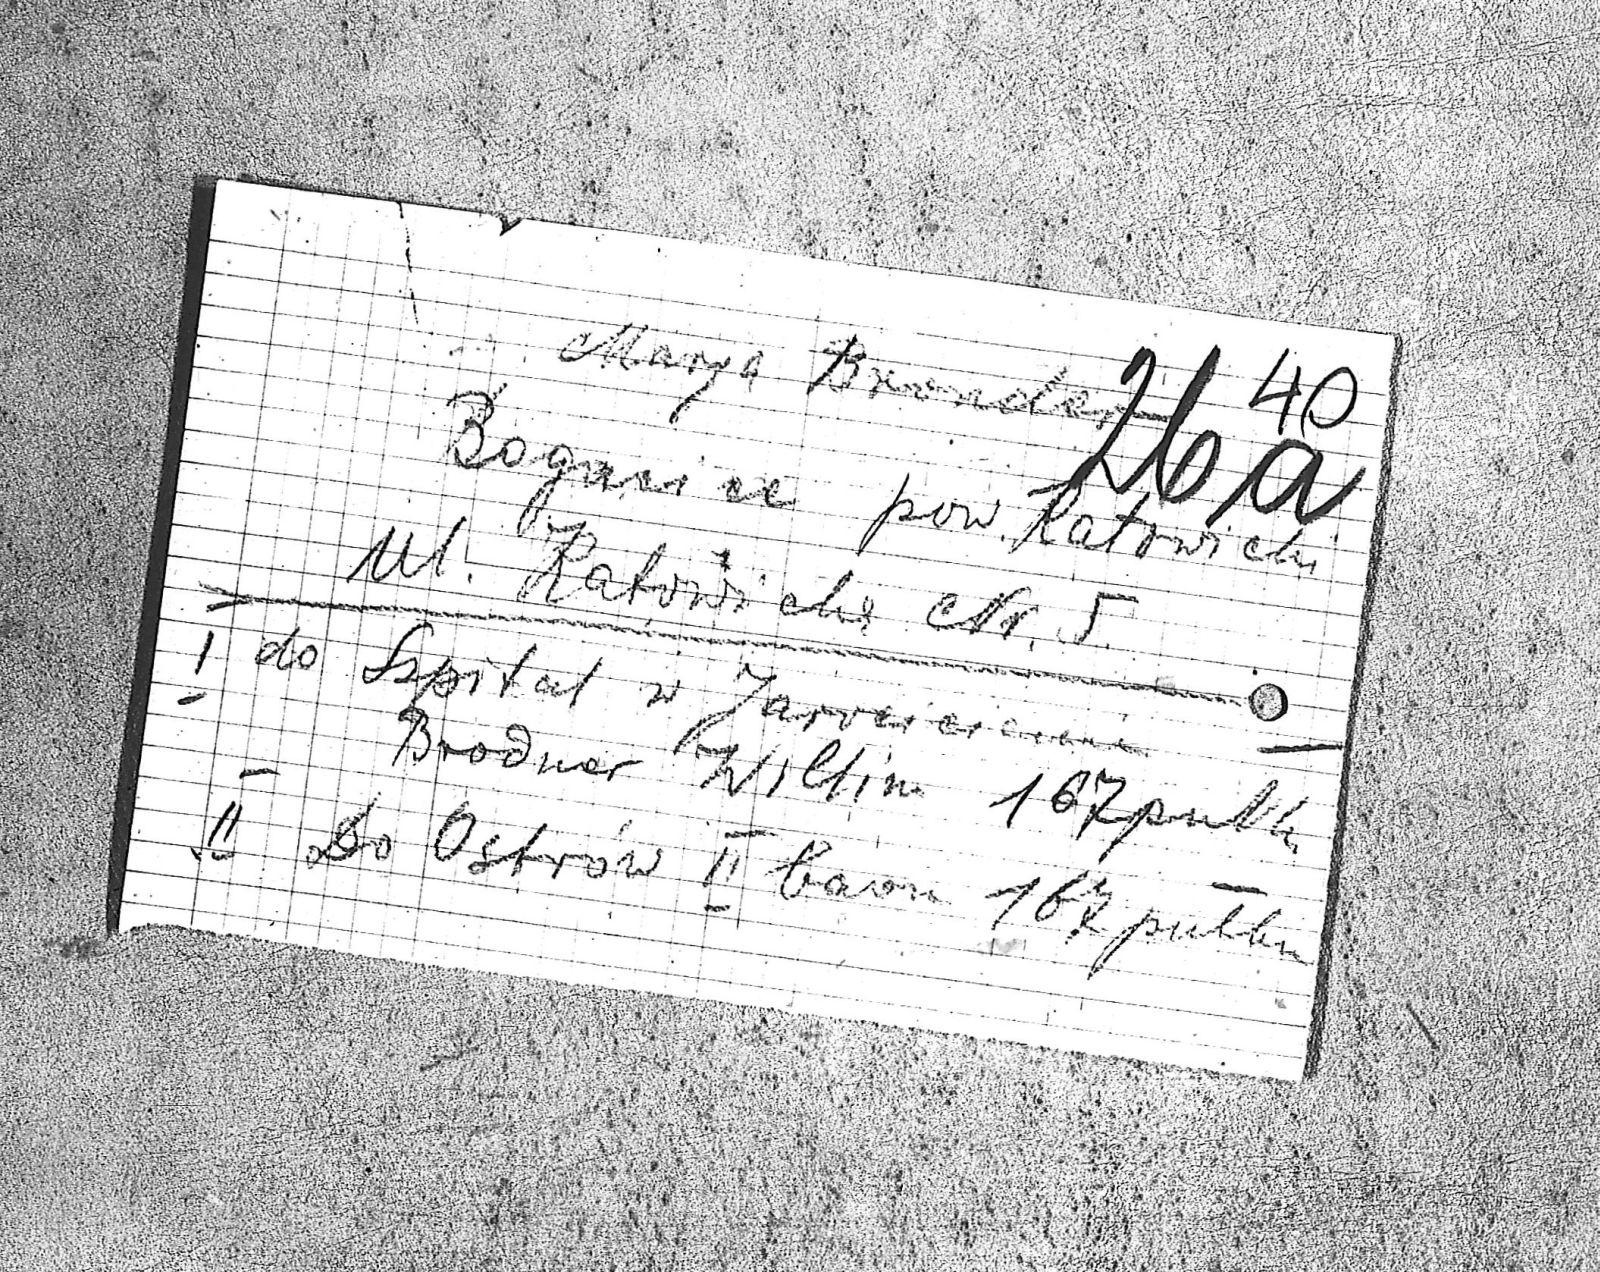 40
26a
Marya Bronder
Bogucice pow. Katowicki
Ul. Katowicka Nr. 5.
I do Szpital w
Brodner Wiltin 167 pułku
II Do Ostrów II baon 167 pułku